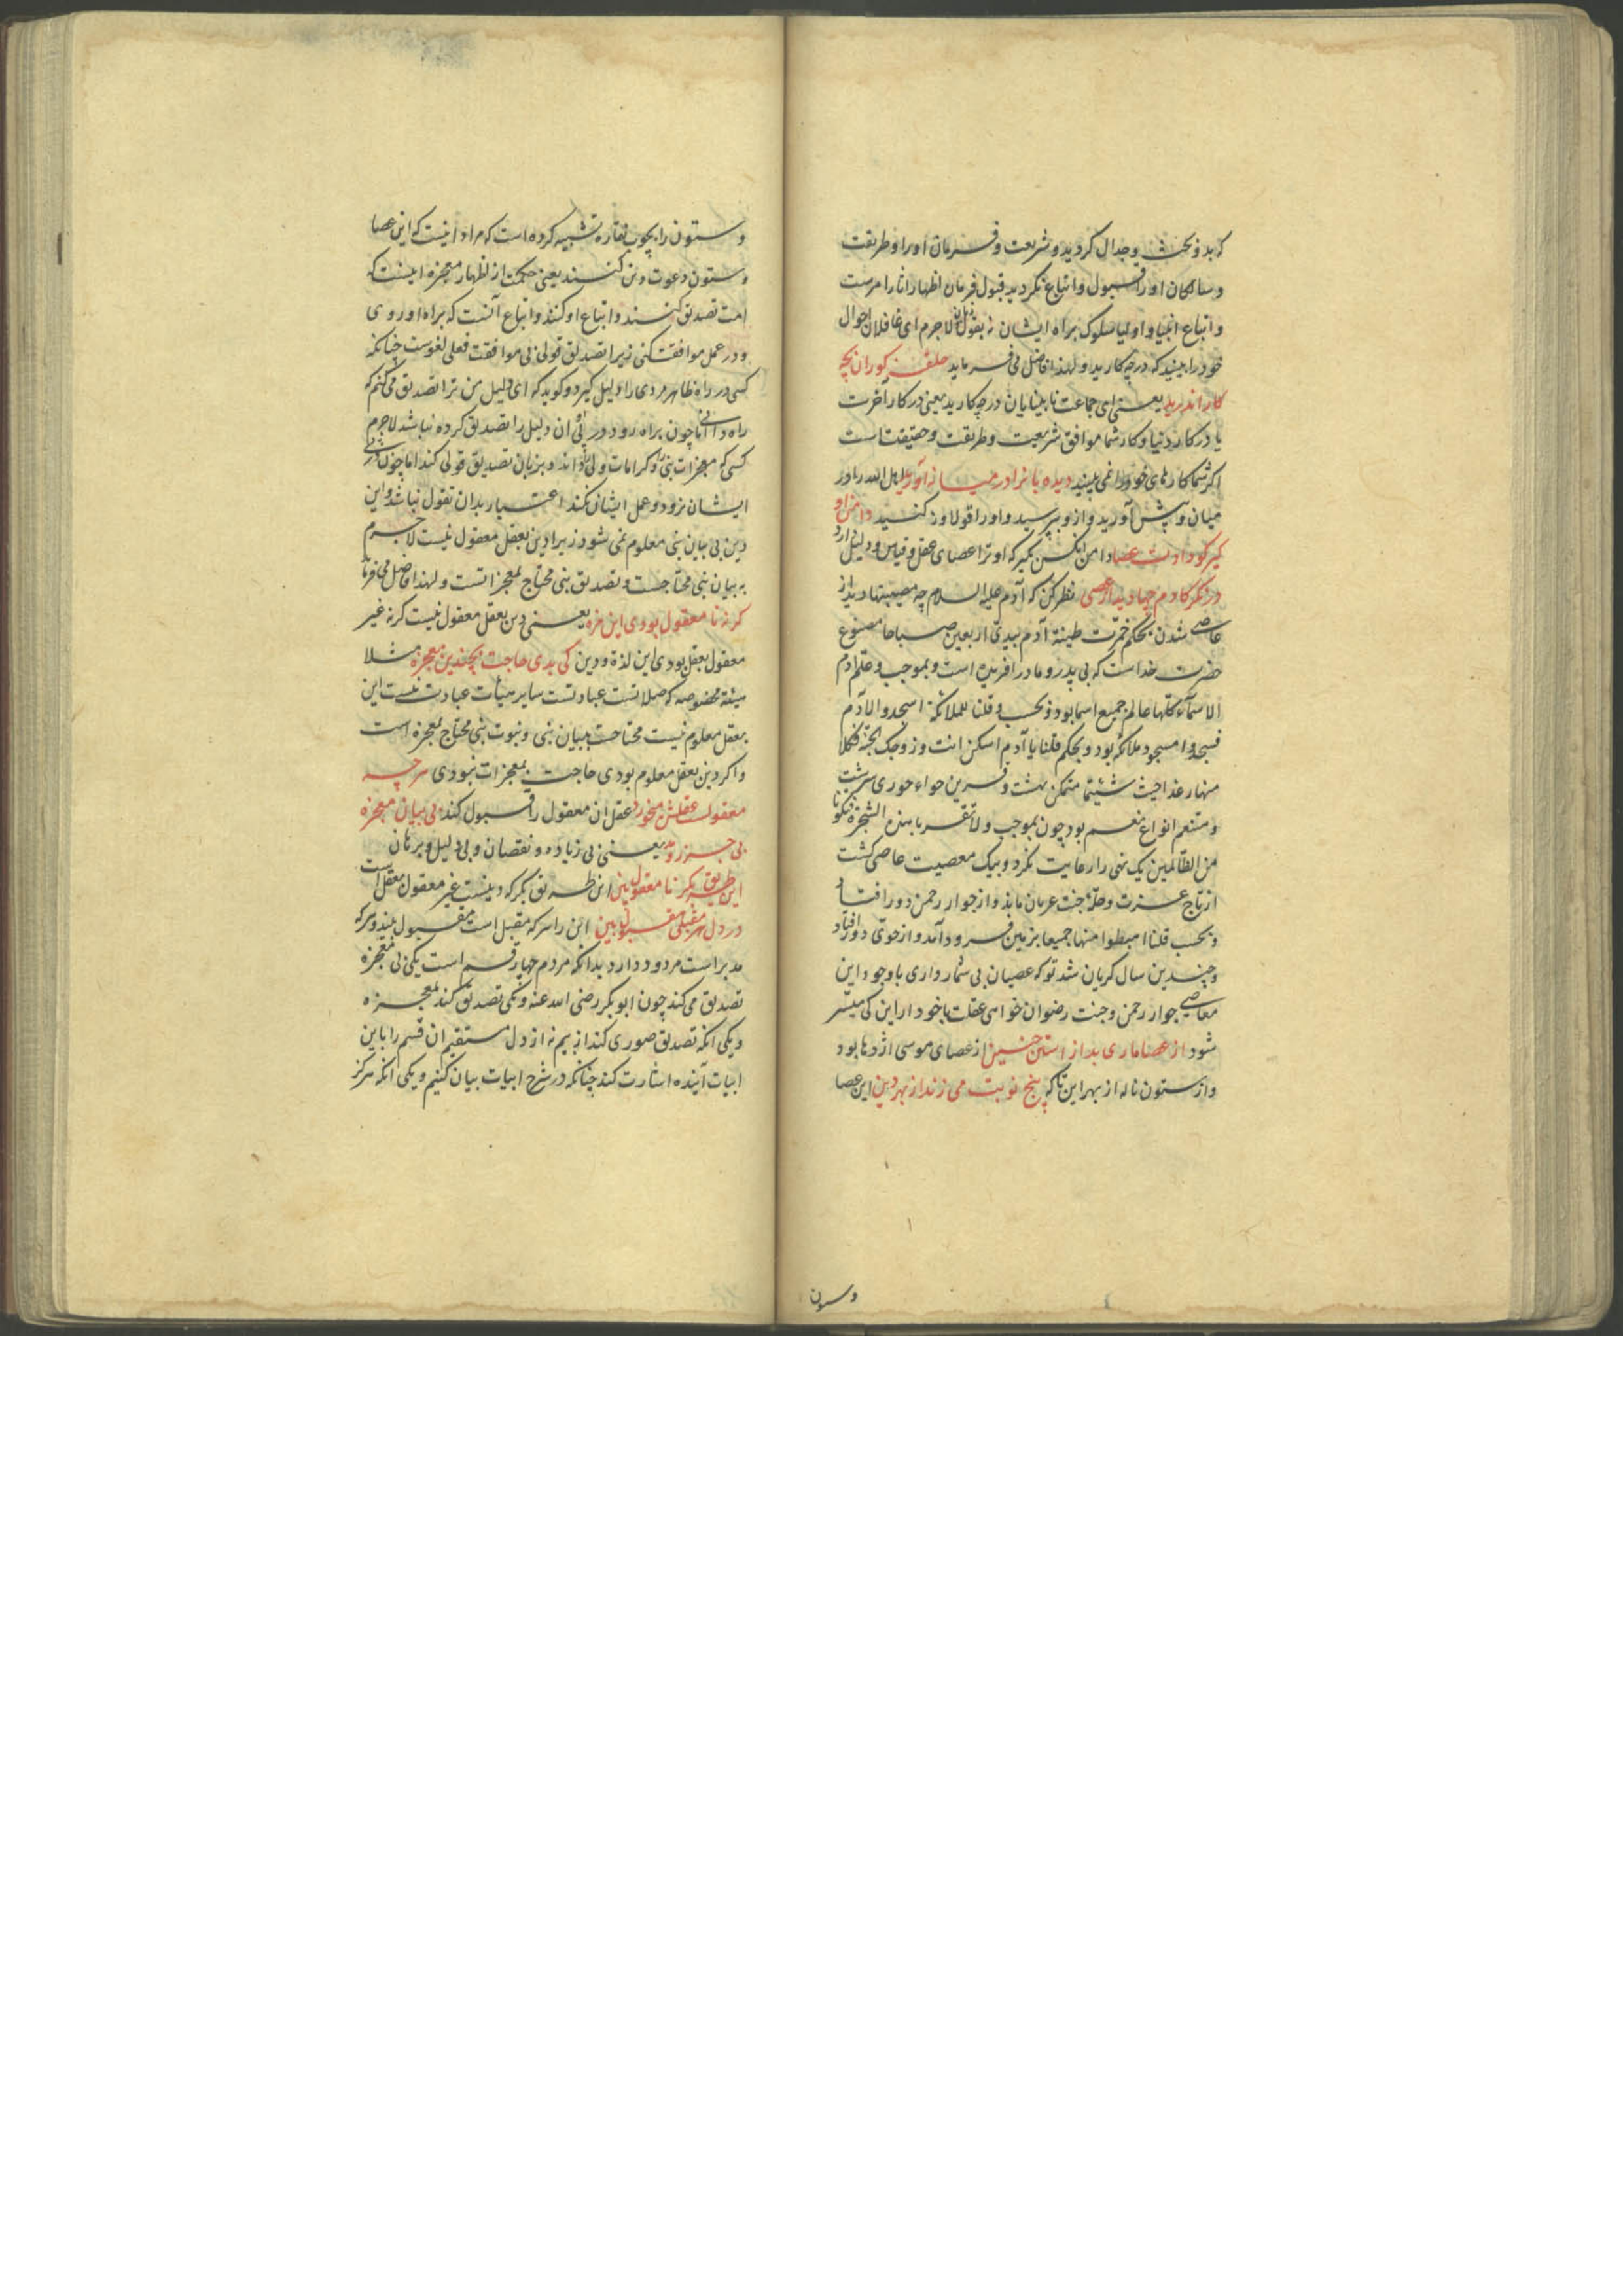 که بدو بحث و جدال کردید و شریعت و فرمان او را و طریقت
و سالکان او را قبول و اتباع نکردید قبول فرمان اظهار اثار امرست
و اتباع انبیا و اولیا سلوک براه ایشان نه بقول لاجرم ای غافلان احوال
خود را ببینید که در چه کارید و لهذا فاضل می فرماید حلقه کوران بچه
کار اندرید یعنی ای جماعت نابینایان در چه کارید یعنی در کار آخرت
یا در کار دنیا و کار شما موافق شریعت و طریقت و حقیقتاست
اکر شما کارهای خود را نمی بینید دیده بانرا در میانه آورید اهل الله را در
میان و پیش آورید و از و بپرسید و او را قولاورد کنید دامن او
کیر کو دادت عصا دامن انکس بکیر که او ترا عصای عقل و قیاس و دلیل داد
در نکر کادم چها دید از عصی نظر کن که آدم علیه السلام چه مصیبتها دید از
عاصی شدن بحکم خمرت طینة آدم بیدی اربعین صباحا مصنوع
حضرت خداست که بی پدر و مادر افریده است و بموجب و علم ادم
الاسمآء کلها عالم جمیع اسما بود و بحسب و قلنا للملائکة اسجدوا لآدم
فسجدوا مسجود ملائکه بود و بحکم قلنا یا آدم اسکن انت و زوجک الجنة فکلا
منها رغدا حیث شئتما متمکن بهشت و قرین حواء حوری سرشت
و متنعم انواع نعم بود چون بموجب و لا تقربا هذه الشجرة فتکونا
من الظالمین یک نهی را رعایت نکرد و بیک معصیت عاصی کشت
از تاج عزت و حلهٔ جنت عریان ماند و از جوار رحمن دور افتاد
و بحسب قلنا اهبطوا منها جمیعا بزمین فرود آمد و از حوی دور افتاد
و چندین سال کریان شد تو که عصیان بی شمار داری با وجود این
معاصی جوار رحمن و جنت رضوان خواهی عقلت باخود ار این کی میسر
شود از عصا ماری بد از استن حنین از عصای موسی اژدها بود
و از ستون ناله از بهر این تا که پنج نوبت می زند از بهر دین این عصا
و ستون
و ستون را بچوب نقاره تشبیه کرده است که مراد اینست که این عصا
و ستون دعوت دین کنند یعنی حکمت از اظهار معجزه اینست که
امت تصدیق کنند و اتباع او کنند و اتباع آنست که براه او روی
و در عمل موافقت کنی زیرا تصدیق قولی بی موافقت فعلی لغوست چنانکه
کسی در راه ظاهر مردی را دلیل کیرد و کوید که ای دلیل من ترا تصدیق می کنم که
راه دانی اما چون براه رود در پی ان دلیل را تصدیق کرده نباشد لاجرم
کسی که معجزات نبی و کرامات ولی داند و بزبان تصدیق قولی کند اما چون در پی
ایشان نرود و عمل ایشان نکند اعتبار بدان تقول نباشد و این
دین بی بیان نبی معلوم نمی شود زیرا دین بعقل معقول نیست لاجرم
به بیان نبی محتاجست و تصدیق نبی محتاج بمعجزاتست و لهذا فاضل می فرماید
کرنه نا معقول بودی این مزه یعنی دین بعقل معقول نیست کر نه غیر
معقول بعقل بودی این لذة و دین کی بدی حاجت بچندین معجزه مثلا
هیئة مخصوصه که صلاتست عبادتست سایر هیئات عبادت نیست این
بعقل معلوم نیست محتاجست ببیان نبی و نبوت نبی محتاج بمعجزه است
و اکر دین بعقل معلوم بودی حاجت بمعجزات نبودی هر چه
معقولست عقلش می خورد عقل ان معقول را قبول کند بی بیان معجزه
بی جزر و مد یعنی بی زیاده و نقصان و بی دلیل و برهان
این طریق بکر نا معقول بین این طریق بکر که دینست غیر معقول بعقل است
در دل هر مقبلی مقبول بین این را هر که مقبل است مقبول بیند و هر که
مدبر است مردود دارد بدانکه مردم چهار قسم است یکی بی معجزه
تصدیق می کند چون ابوبکر رضی الله عنه و یکی تصدیق کند بمعجزه
و یکی انکه تصدیق صوری کند از بیم نه از دل مستقیم ان قسم را باین
ابیات آینده اشارت کند چنانکه در شرح ابیات بیان کنیم و یکی انکه هرکز